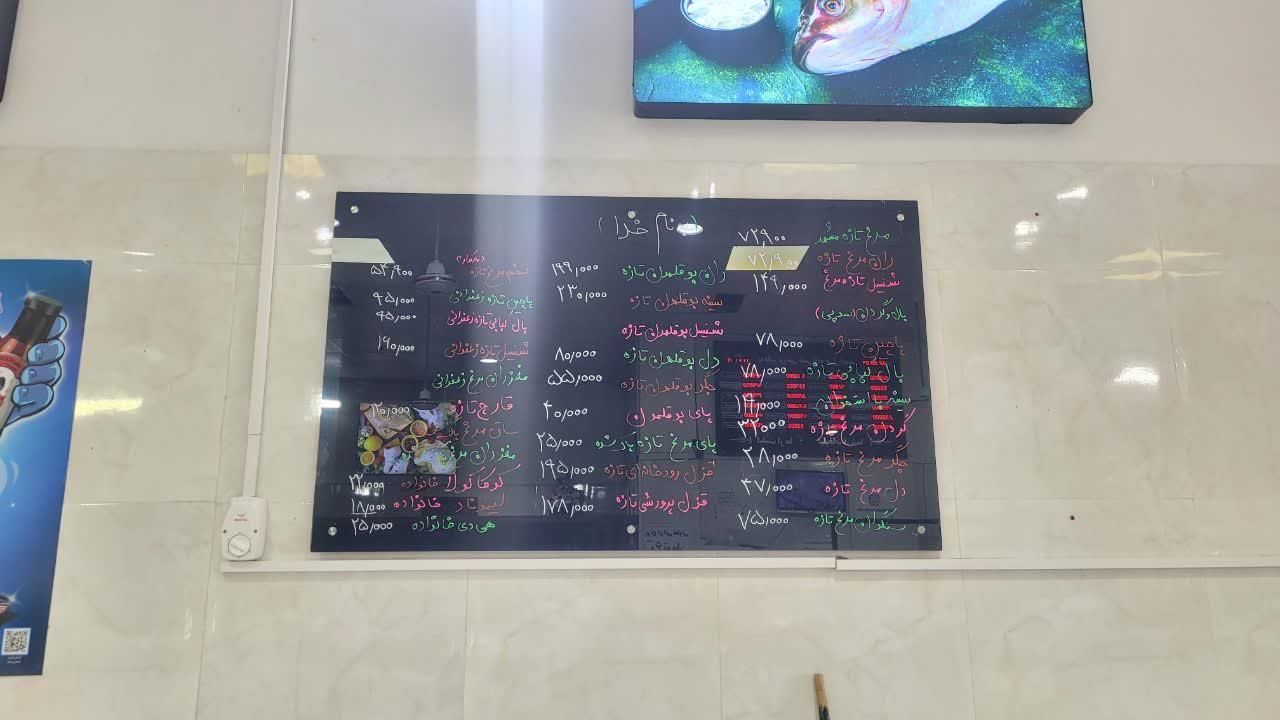 بنام خدا
مرغ تازه مشهد ۷۲,۹۰۰
ران مرغ تازه ۷۲,۹۰۰
شنسل تازه مرغ ۱۴۹,۰۰۰
بال و گردن (سوپی)
پاچین تازه ۷۸,۰۰۰
بال کبابی تازه ۷۸,۰۰۰
سینه با استخوان
گردن مرغ تازه
جگر مرغ تازه ۲۸,۰۰۰
دل مرغ تازه ۴۷,۰۰۰
سنگدان مرغ تازه ۷۵,۰۰۰
ران بوقلمون تازه ۱۹۹,۰۰۰
سینه بوقلمون تازه ۲۳۰,۰۰۰
شنسل بوقلمون تازه
دل بوقلمون تازه ۸۰,۰۰۰
جگر بوقلمون تازه ۵۵,۰۰۰
پای بوقلمون ۴۰,۰۰۰
پای مرغ تازه ۲۵,۰۰۰
قزل رودخانه‌ای تازه ۱۹۵,۰۰۰
قزل پرورشی تازه ۱۷۸,۰۰۰
تخم مرغ تازه ۵۴,۹۰۰
پاچین تازه زعفرانی ۹۵,۰۰۰
بال کبابی تازه زعفرانی ۹۵,۰۰۰
شنسل تازه زعفرانی ۱۶۰,۰۰۰
مغز ران مرغ زعفرانی
قارچ تازه
ساق مرغ
مغز ران مرغ
کوکاکولا خانواده ۲۲,۰۰۰
لیموناد خانواده ۱۸,۰۰۰
هی دی خانواده ۲۵,۰۰۰